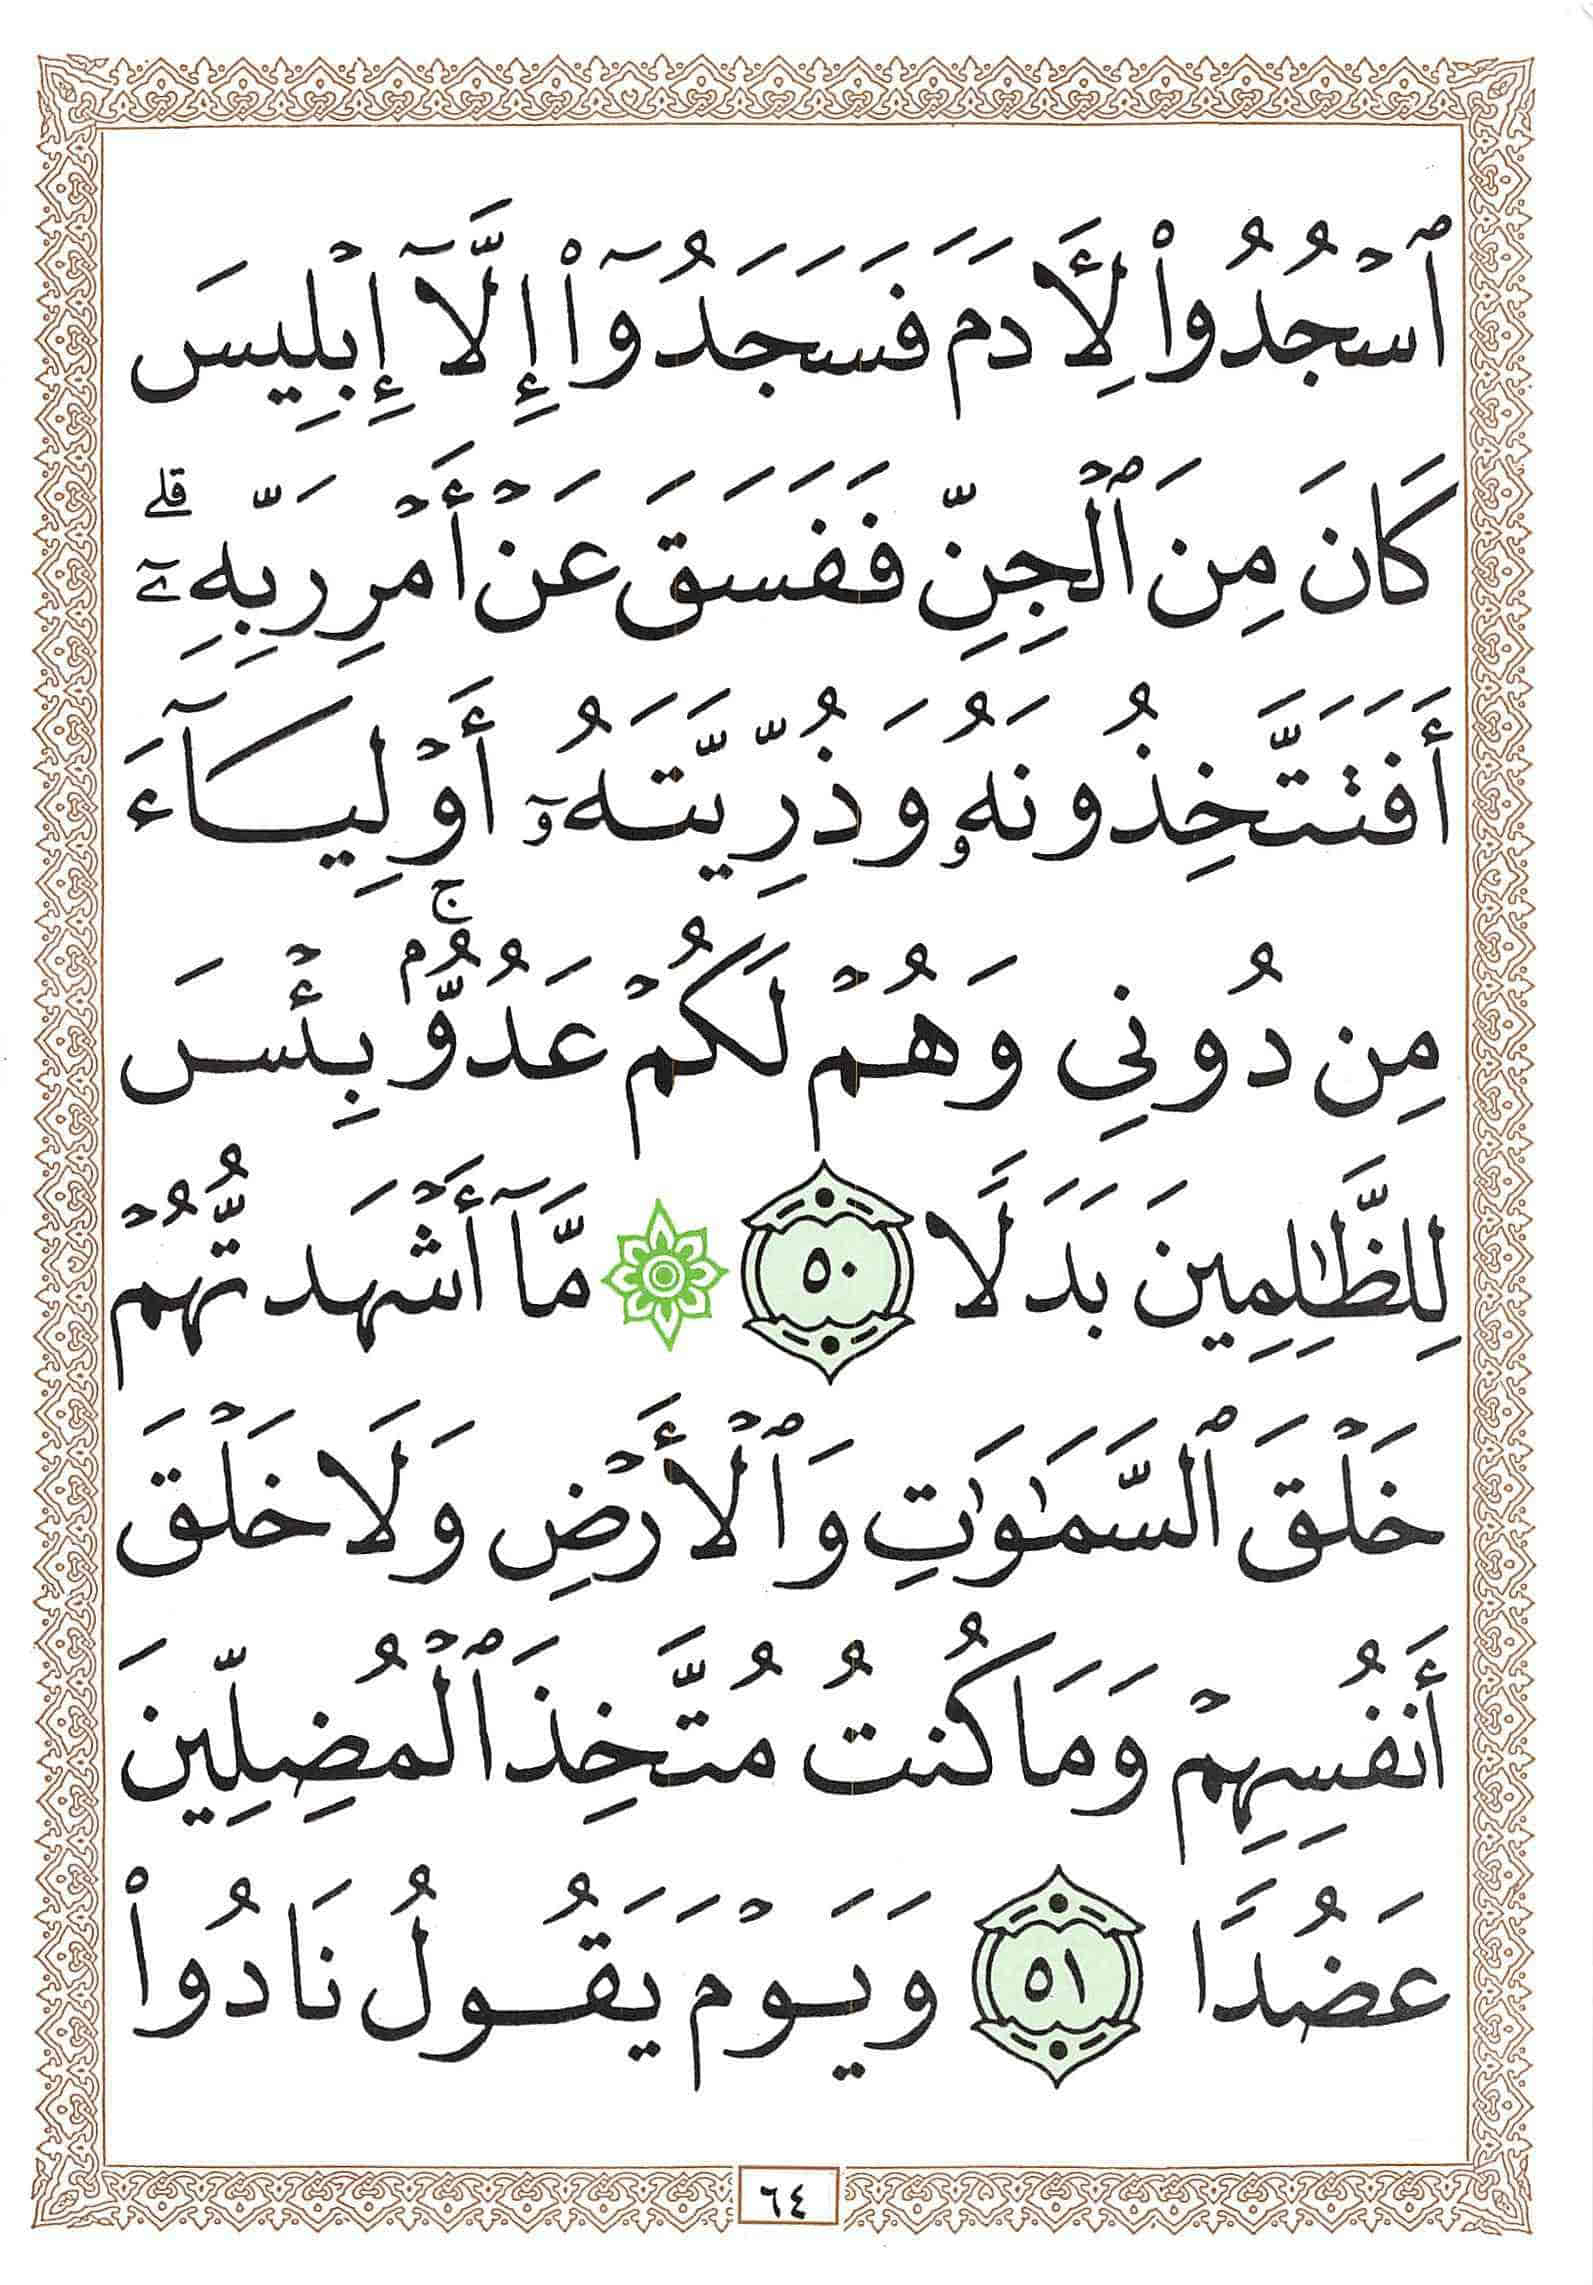 ٱسۡجُدُواْ لِأَدَمَ فَسَجَدُوٓاْ إِلَّآ إِبۡلِيسَ
كَانَ مِنَ ٱلۡجِنِّ فَفَسَقَ عَنۡ أَمۡرِ رَبِّهِۦٓۗ
أَفَتَتَّخِذُونَهُۥ وَذُرِّيَّتَهُۥٓ أَوۡلِيَآءَ
مِن دُونِي وَهُمۡ لَكُمۡ عَدُوُّۢۚ بِئۡسَ
لِلظَّٰلِمِينَ بَدَلٗا ٥٠ ۞ مَّآ أَشۡهَدتُّهُمۡ
خَلۡقَ ٱلسَّمَٰوَٰتِ وَٱلۡأَرۡضِ وَلَا خَلۡقَ
أَنفُسِهِمۡ وَمَا كُنتُ مُتَّخِذَ ٱلۡمُضِلِّينَ
عَضُدٗا ٥١ وَيَوۡمَ يَقُولُ نَادُواْ
٦٤